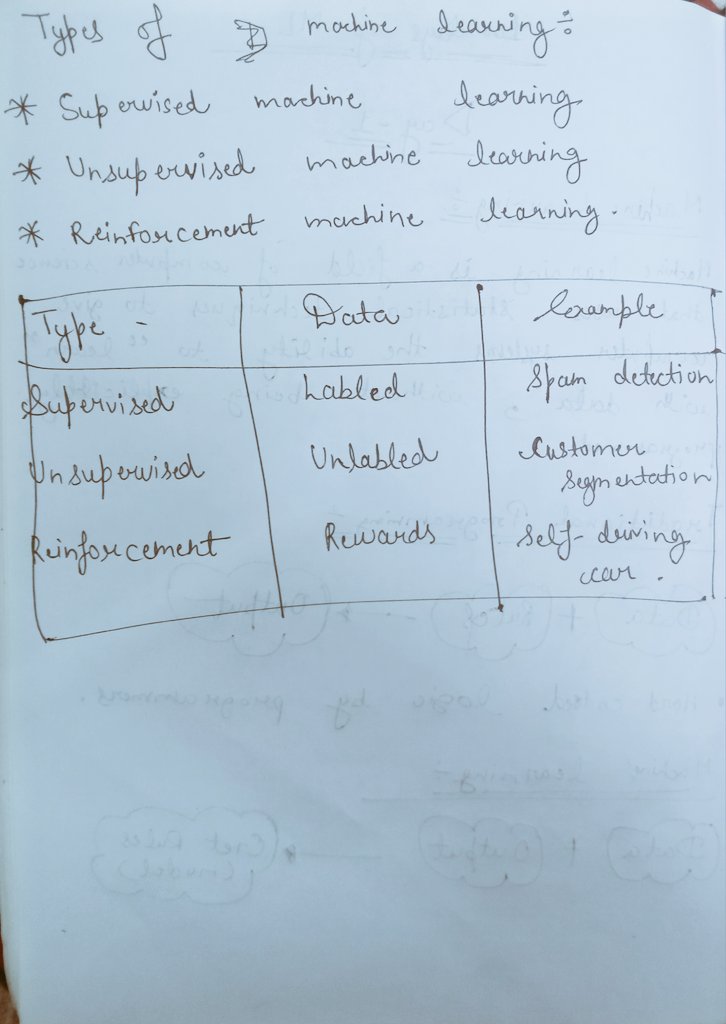 Types of machine learning ÷
* Supervised machine learning
* Unsupervised machine learning
* Reinforcement machine learning.
Type - Data Example
Supervised Labled Spam detection
Unsupervised Unlabled Customer
segmentation
Reinforcement Rewards Self-driving
car.